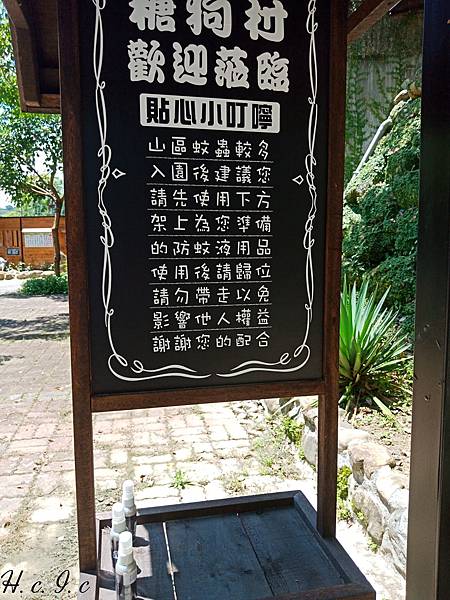 糖狗村
歡迎蒞臨
貼心小叮嚀
山區蚊蟲較多
入園後建議您
請先使用下方
架上為您準備
的防蚊液用品
使用後請歸位
請勿帶走以免
影響他人權益
謝謝您的配合
H.c.I.c